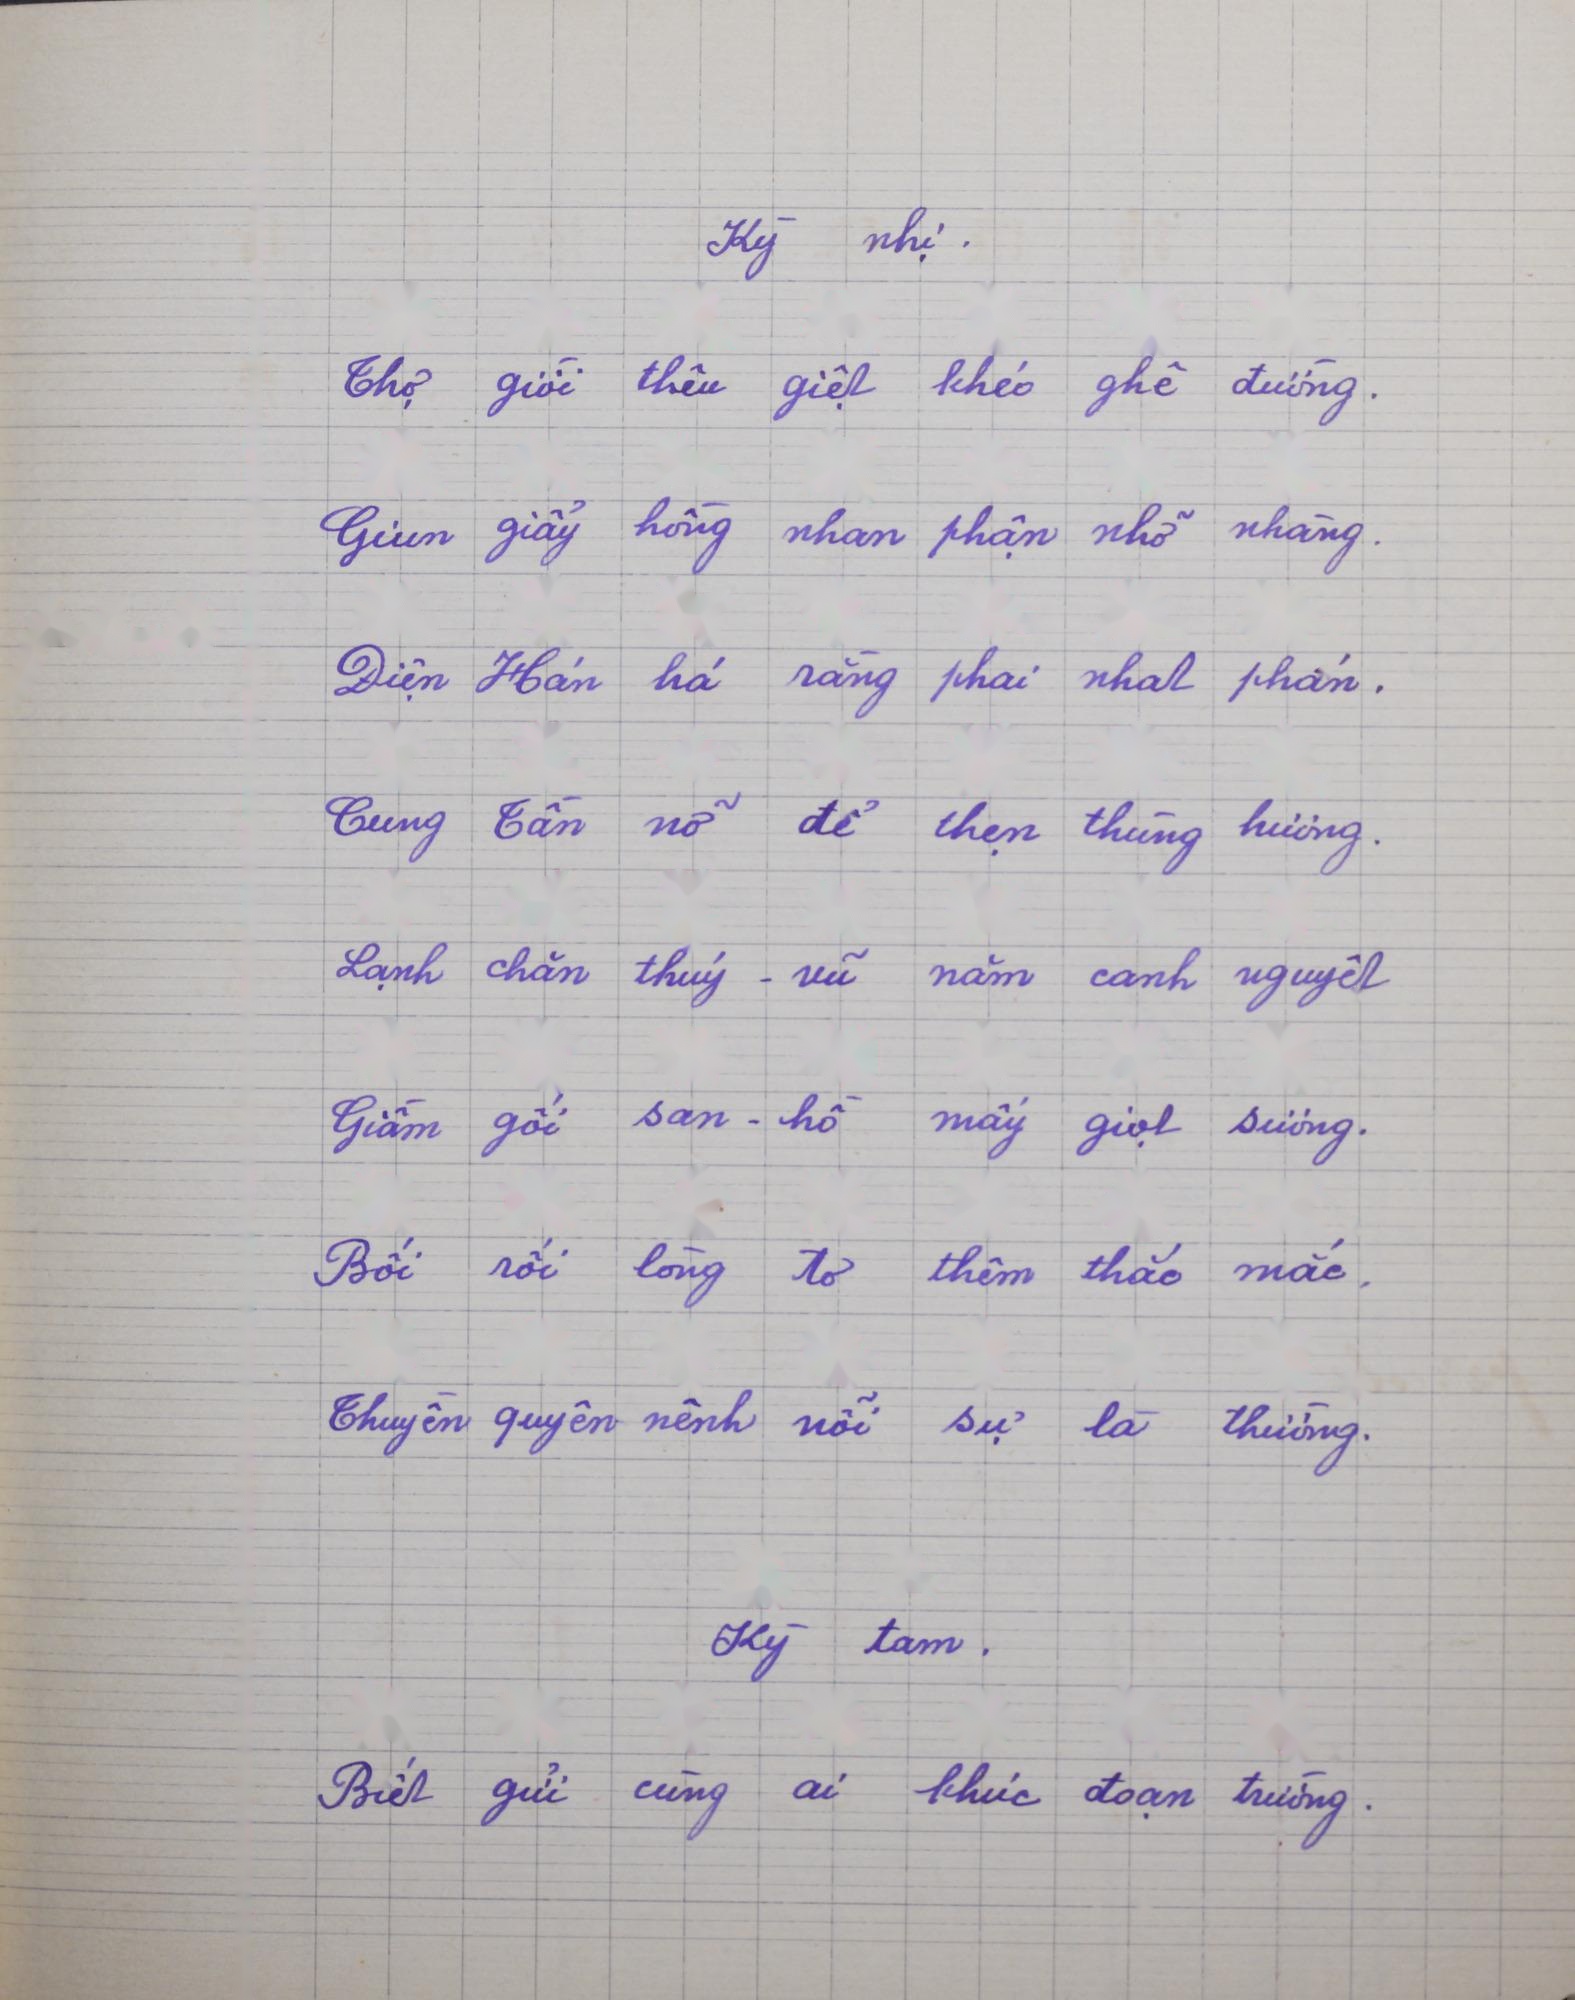 Kỳ nhị.
Thợ giời thêu giệt khéo ghê đường.
Giun giẩy hồng nhan phận nhỡ nhàng.
Điện Hán há rằng phai nhạt phấn.
Cung Tần nỡ để thẹn thùng hương.
Lạnh chăn thuý-vũ năm canh nguyệt
Giầm gối san-hồ mấy giọt sương.
Bối rối lòng tơ thêm thắc mắc.
Thuyền quyên nênh nỗi sự là thường.
Kỳ tam.
Biết gửi cùng ai khúc đoạn trường.